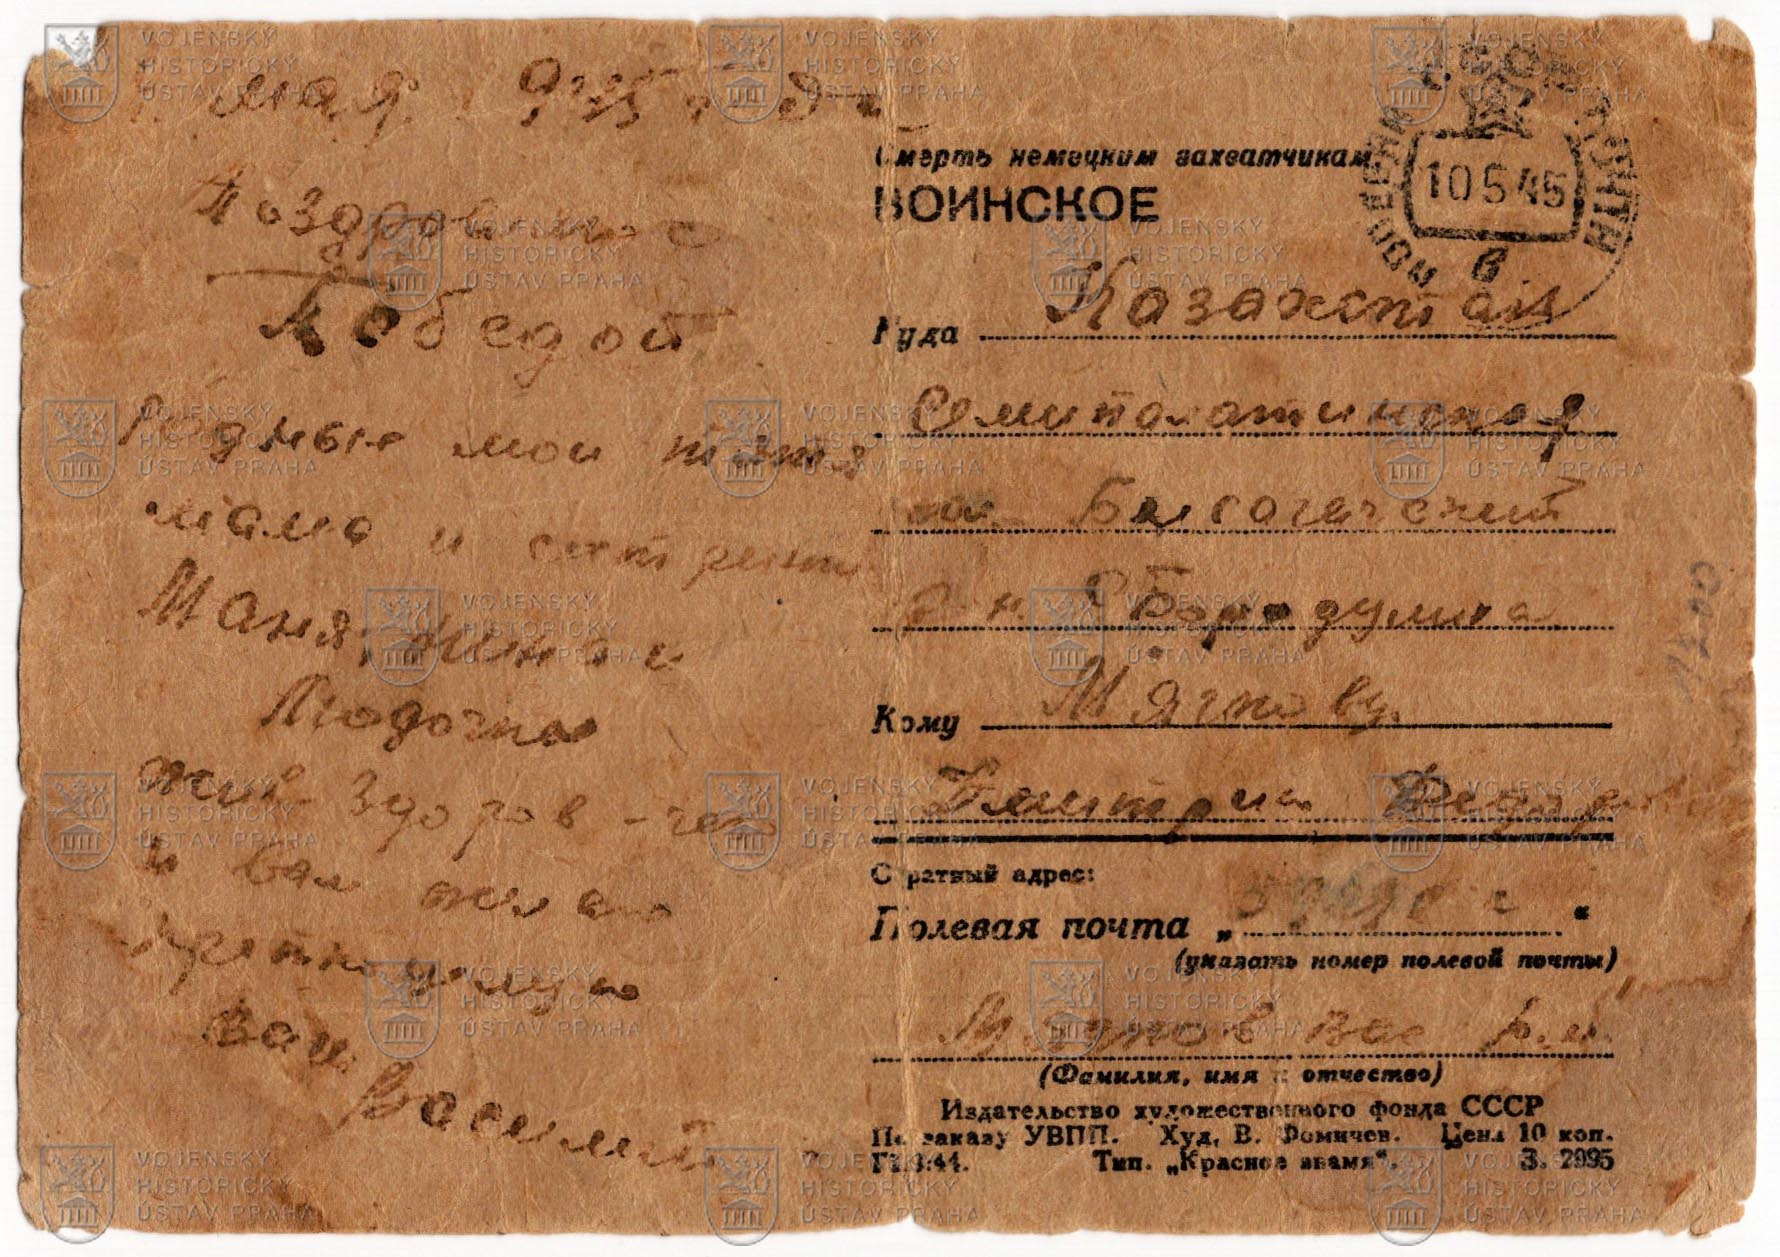 мая 945 г.
Поздровляю с
Победой
Родные мои тятя
мама и сестрены
Маня, Нина и
Людочка
жив здоров - чего
и вам желаю
Крепко целую
Ваш
Василий
Смерть немецким захватчикам
ВОИНСКОЕ
ПОЛЕВАЯ ПОЧТА
10 5 45
в
Куда Казахстан
Семипалатинская
обл. Белогачский
р-н. с Бородулиха
Кому Мягкову
Дмитрию Федор
Обратный адрес:
Полевая почта „ “
(указать номер полевой почты)
Мягков Вас
(Фамилия, имя и отчество)
Издательство художественного фонда СССР
По заказу УВПП. Худ. В. Фомичев. Цена 10 коп.
Тип. „Красное знамя“. З. 2995
VOJENSKÝ
HISTORICKÝ
ÚSTAV PRAHA